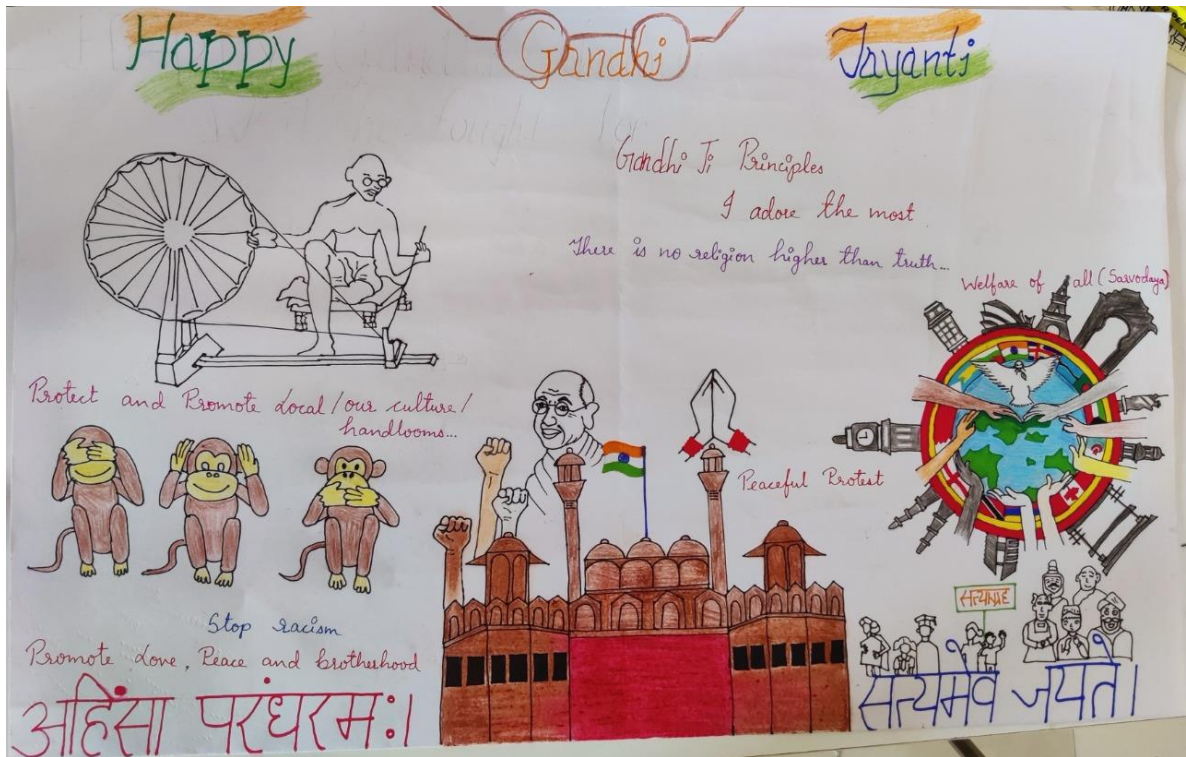 Happy Gandhi Jayanti
Gandhi Ji Principles
I adore the most
There is no religion higher than truth...
Welfare of all (Sarvodaya)
Protect and Promote Local/our culture/
handlooms...
Peaceful Protest
Stop racism
Promote Love, Peace and brotherhood
अहिंसा परंधरमः।
सत्याग्रह
सत्यमेव जयते।